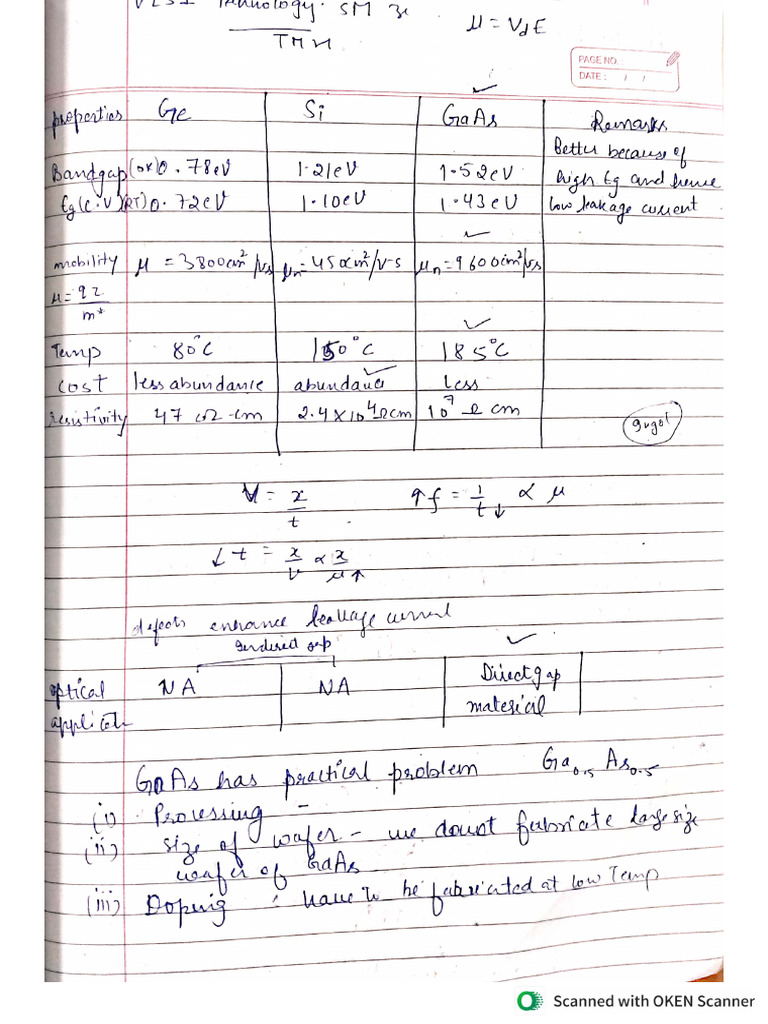 VLSI Technology. SM Sze
TMH
μ = VdE
PAGE NO.
DATE: / /
properties Ge Si GaAs Remarks
Bandgap (0K) 0.78eV 1.21eV 1.52eV Better because of
Eg(e.V)(RT) 0.72eV 1.10eV 1.43eV high Eg and hence
low leakage current
mobility μ = 3800cm²/vs μn=450cm²/v-s μn=9600cm²/vs
μ = qτ/m*
Temp 80°C 150°C 185°C
cost less abundance abundance less
resistivity 47 Ω-cm 2.4×10⁴Ωcm 10⁷ Ω cm
V = x/t ↑f = 1/t↓ ∝ μ
↓t = x/v ∝ x/μ↑
defects enhance leakage current
optical NA NA Direct gap
applicatn material
GaAs has practical problem Ga0.5 As0.5
(i) Processing –
(ii) size of wafer – we donot fabricate large size
wafer of GaAs
(iii) Doping : have to be fabricated at low Temp
Scanned with OKEN Scanner